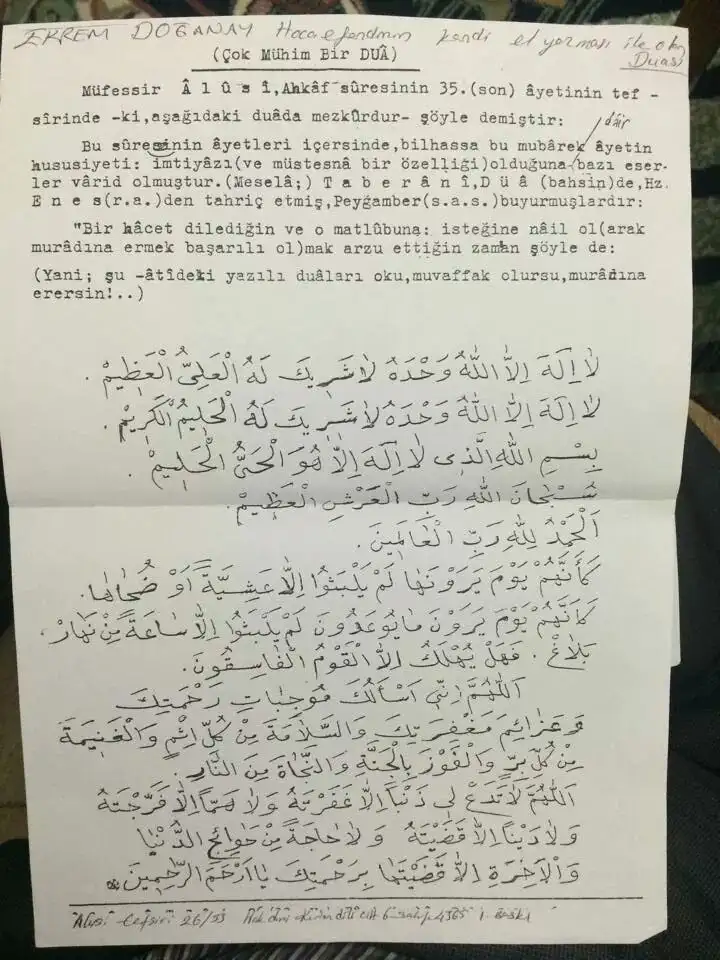 EKREM DOĞANAY Hocaefendinin kendi el yazması ile olan
Duası
(Çok Mühim Bir DUÂ)
Müfessir Â l û s î,Ahkâf sûresinin 35.(son) âyetinin tef -
sîrinde -ki,aşağıdaki duâda mezkûrdur- şöyle demiştir:
dâir
Bu sûresinin âyetleri içersinde,bilhassa bu mubârek âyetin
hususiyeti: imtiyâzı(ve müstesnâ bir özelliği)olduğuna bazı eser-
ler vârid olmuştur.(Meselâ;) T a b e r â n î,D ü â (bahsin)de,Hz.
E n e s(r.a.)den tahriç etmiş,Peyğamber(s.a.s.)buyurmuşlardır:
"Bir hâcet dilediğin ve o matlûbuna: isteğine nâil ol(arak
murâdına ermek başarılı ol)mak arzu ettiğin zaman şöyle de:
(Yani; şu -âtîdeki yazılı duâları oku,muvaffak olursu,murâdına
erersin!..)
لَا اِلٰهَ اِلَّا اللّٰهُ وَحْدَهُ لَا شَرِيكَ لَهُ الْعَلِيُّ الْعَظِيمُ .
لَا اِلٰهَ اِلَّا اللّٰهُ وَحْدَهُ لَا شَرِيكَ لَهُ الْحَلِيمُ الْكَرِيمُ .
بِسْمِ اللّٰهِ الَّذِى لَا اِلٰهَ اِلَّا هُوَ الْحَىُّ الْحَلِيمُ .
سُبْحَانَ اللّٰهِ رَبِّ الْعَرْشِ الْعَظِيمِ .
اَلْحَمْدُ لِلّٰهِ رَبِّ الْعَالَمِينَ .
كَاَنَّهُمْ يَوْمَ يَرَوْنَهَا لَمْ يَلْبَثُوا اِلَّا عَشِيَّةً اَوْ ضُحَاهَا .
كَاَنَّهُمْ يَوْمَ يَرَوْنَ مَا يُوعَدُونَ لَمْ يَلْبَثُوا اِلَّا سَاعَةً مِنْ نَهَارْ .
بَلَاغْ . فَهَلْ يُهْلَكُ اِلَّا الْقَوْمُ الْفَاسِقُونَ .
اَللّٰهُمَّ اِنِّى اَسْأَلُكَ مُوجِبَاتِ رَحْمَتِكَ
وَ عَزَائِمَ مَغْفِرَتِكَ وَالسَّلَامَةَ مِنْ كُلِّ اِثْمٍ وَالْغَنِيمَةَ
مِنْ كُلِّ بِرٍّ وَالْفَوْزَ بِالْجَنَّةِ وَالنَّجَاةَ مِنَ النَّارِ .
اَللّٰهُمَّ لَا تَدَعْ لِى ذَنْبًا اِلَّا غَفَرْتَهُ وَلَا هَمًّا اِلَّا فَرَّجْتَهُ
وَلَا دَيْنًا اِلَّا قَضَيْتَهُ وَلَا حَاجَةً مِنْ حَوَائِجِ الدُّنْيَا
وَالْاٰخِرَةِ اِلَّا قَضَيْتَهَا بِرَحْمَتِكَ يَا اَرْحَمَ الرَّاحِمِينَ
Âlûsî tefsiri 26/33 cilt 6 sahife 4365 1. Baskı